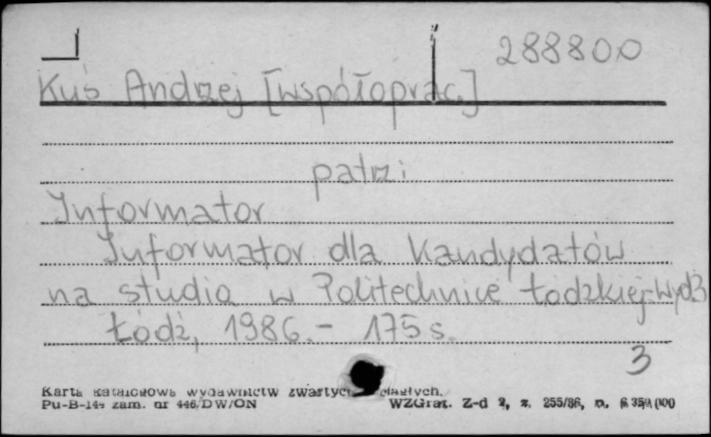 288800
Kuś Andrzej [współoprac.]
patrz:
Informator
Informator dla Kandydatów
na studia w Politechnice Łódzkiej-Wyd3
Łódź, 1986.- 175 s.
3
Karta katalogowa wydawnictw zwartych
Pu-B-144 zam. nr 446/DW/ON WZGraf. Z-d 2, z. 255/86, n.